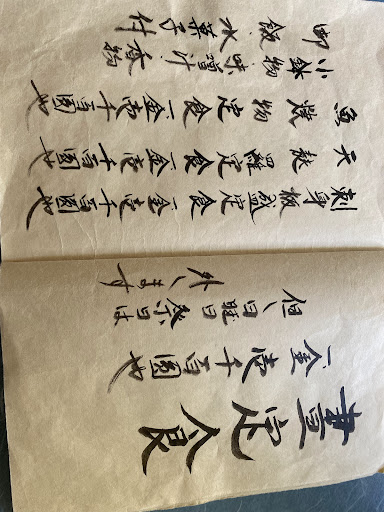 晝定食
一金壱千百圓也
但し日曜日祭日は
外します
刺身板盛定食 一金壱千百圓也
天麩羅定食 一金壱千百圓也
魚焼物定食 一金壱千百圓也
小鉢物 味噌汁 香物
御飯 水菓子付